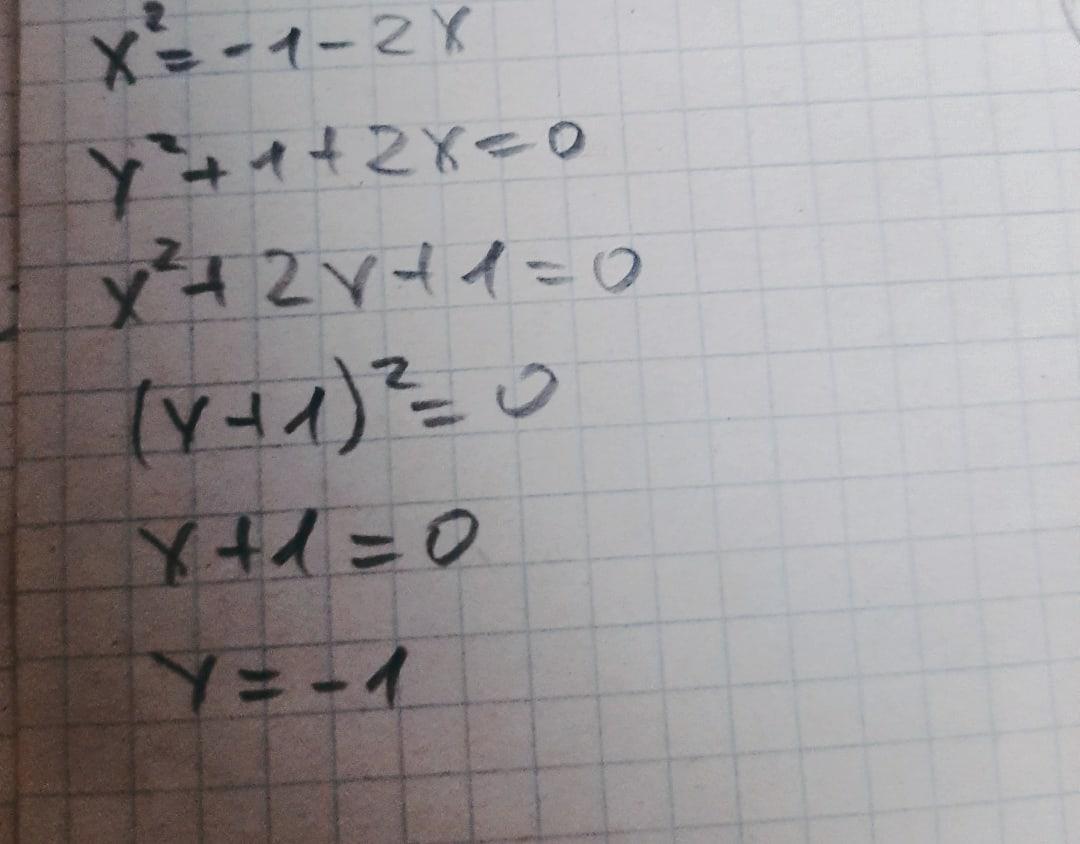 x² = -1 - 2x
x² + 1 + 2x = 0
x² + 2x + 1 = 0
(x + 1)² = 0
x + 1 = 0
x = -1